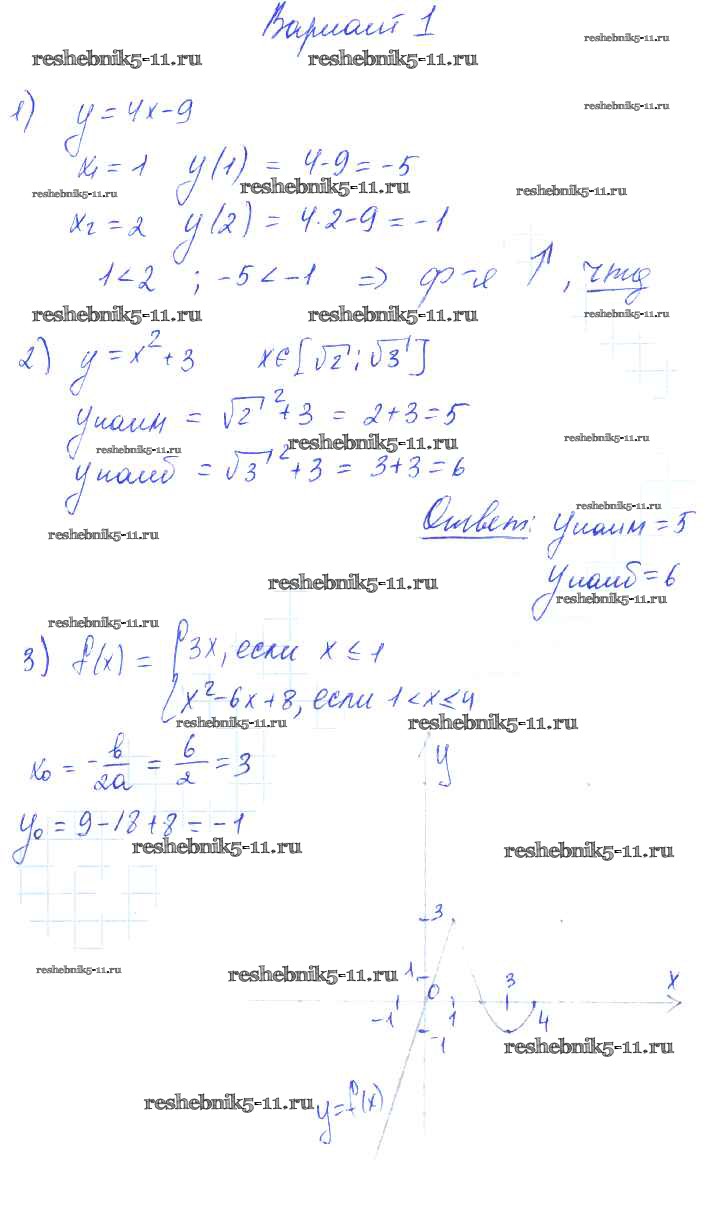 Вариант 1
reshebnik5-11.ru reshebnik5-11.ru reshebnik5-11.ru
1) y = 4x - 9
reshebnik5-11.ru
x₁ = 1 y(1) = 4 - 9 = -5
reshebnik5-11.ru reshebnik5-11.ru reshebnik5-11.ru
x₂ = 2 y(2) = 4·2 - 9 = -1
1 < 2 ; -5 < -1 => ф-я ↑, чтд
reshebnik5-11.ru reshebnik5-11.ru reshebnik5-11.ru
2) y = x² + 3 x∈[√2; √3]
yнаим = √2² + 3 = 2 + 3 = 5
reshebnik5-11.ru reshebnik5-11.ru reshebnik5-11.ru
yнаиб = √3² + 3 = 3 + 3 = 6
reshebnik5-11.ru
Ответ: yнаим = 5
reshebnik5-11.ru
yнаиб = 6
reshebnik5-11.ru reshebnik5-11.ru
reshebnik5-11.ru
3) f(x) = { 3x, если x ≤ 1
x² - 6x + 8, если 1 < x ≤ 4
reshebnik5-11.ru reshebnik5-11.ru
x₀ = -b/2a = 6/2 = 3
y
y₀ = 9 - 18 + 8 = -1
reshebnik5-11.ru reshebnik5-11.ru
3
reshebnik5-11.ru reshebnik5-11.ru
1 0 3 x
-1 1 4
-1
reshebnik5-11.ru
reshebnik5-11.ru y = f(x)